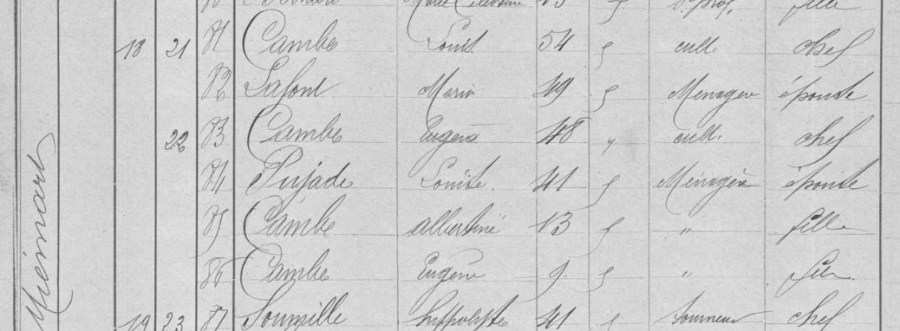 fille
18 21 81 Cambe Louis 54 f cult. chef
82 Lafont Marie 49 f Ménagère épouse
22 83 Cambe Eugène 48 " cult. chef
84 Pujade Louise 41 f Ménagère épouse
85 Cambe Albertine 13 f " fille
86 Cambe Eugène 9 f " fils
19 23 87 Soumille Hippolyte 41 f chef